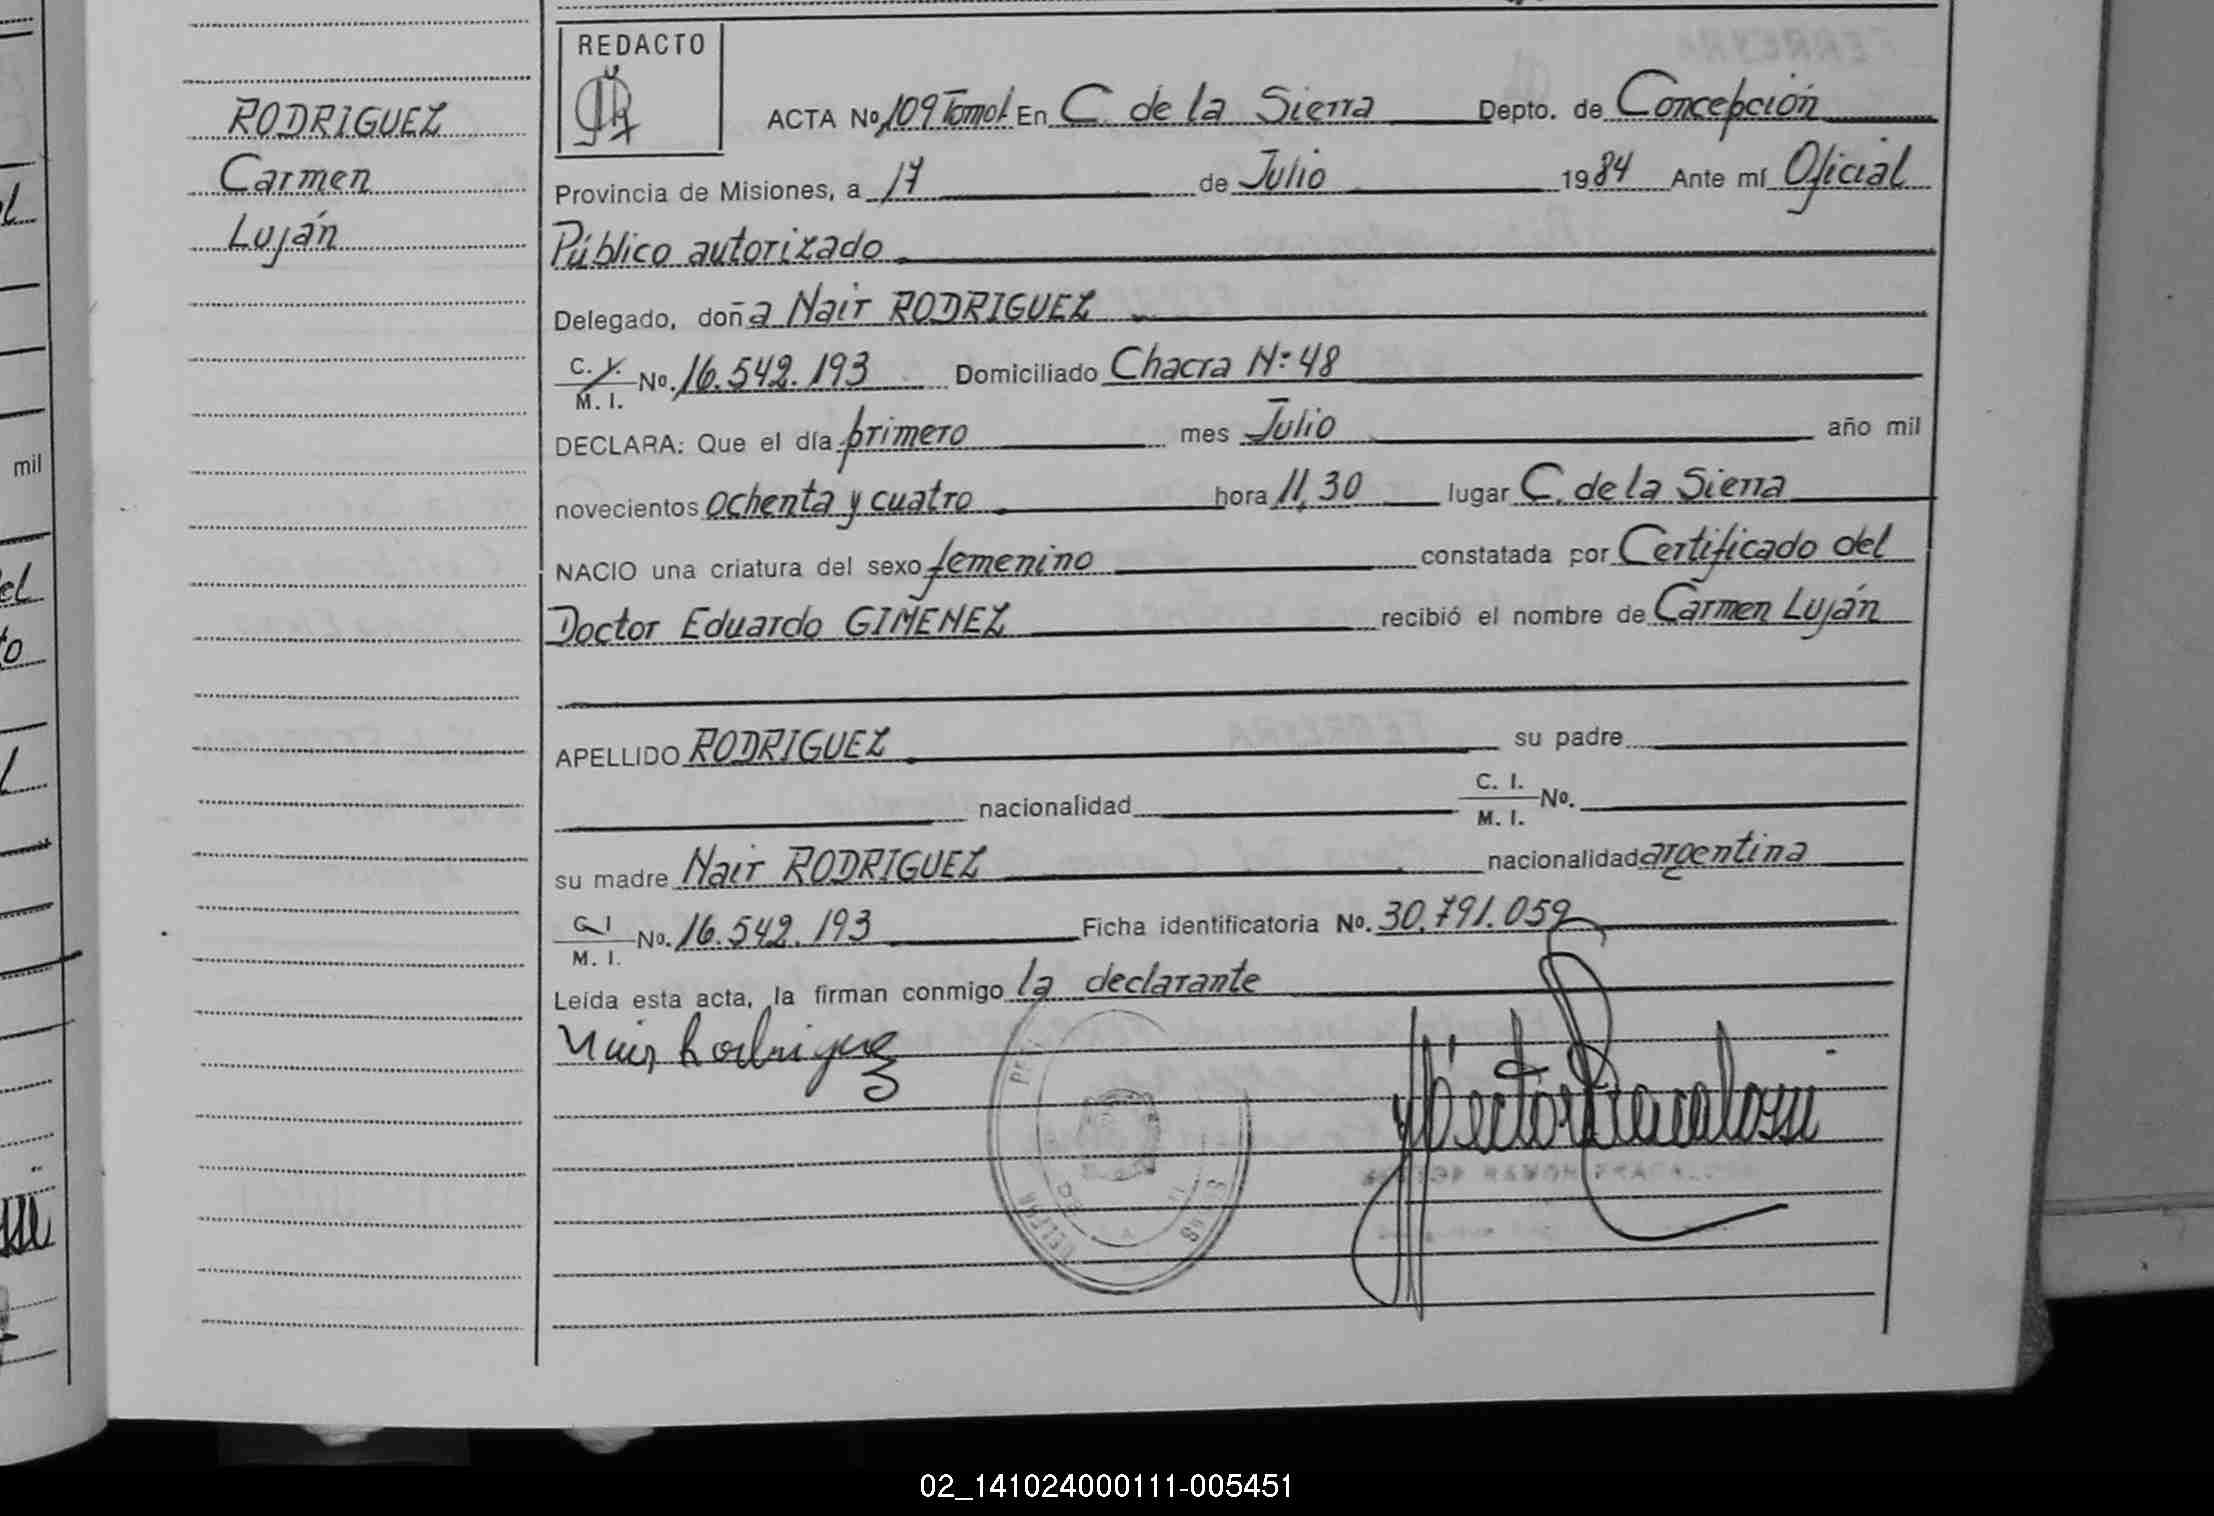 RODRIGUEZ
Carmen
Luján
REDACTO
ACTA No 109 Tomo I En C. de la Sierra Depto. de Concepción
Provincia de Misiones, a 17 de Julio 1984 Ante mí Oficial
Público autorizado
Delegado, doña Nair RODRIGUEZ
C. I.
M. I. No. 16.542.193 Domiciliado Chacra N: 48
DECLARA: Que el día primero mes Julio año mil
novecientos ochenta y cuatro hora 11,30 lugar C. de la Sierra
NACIO una criatura del sexo femenino constatada por Certificado del
Doctor Eduardo GIMENEZ recibió el nombre de Carmen Luján
APELLIDO RODRIGUEZ su padre
nacionalidad C. I.
M. I. No.
su madre Nair RODRIGUEZ nacionalidad argentina
C. I.
M. I. No. 16.542.193 Ficha identificatoria No. 30.791.059
Leída esta acta, la firman conmigo la declarante
Nair Rodriguez
mil
02_141024000111-005451